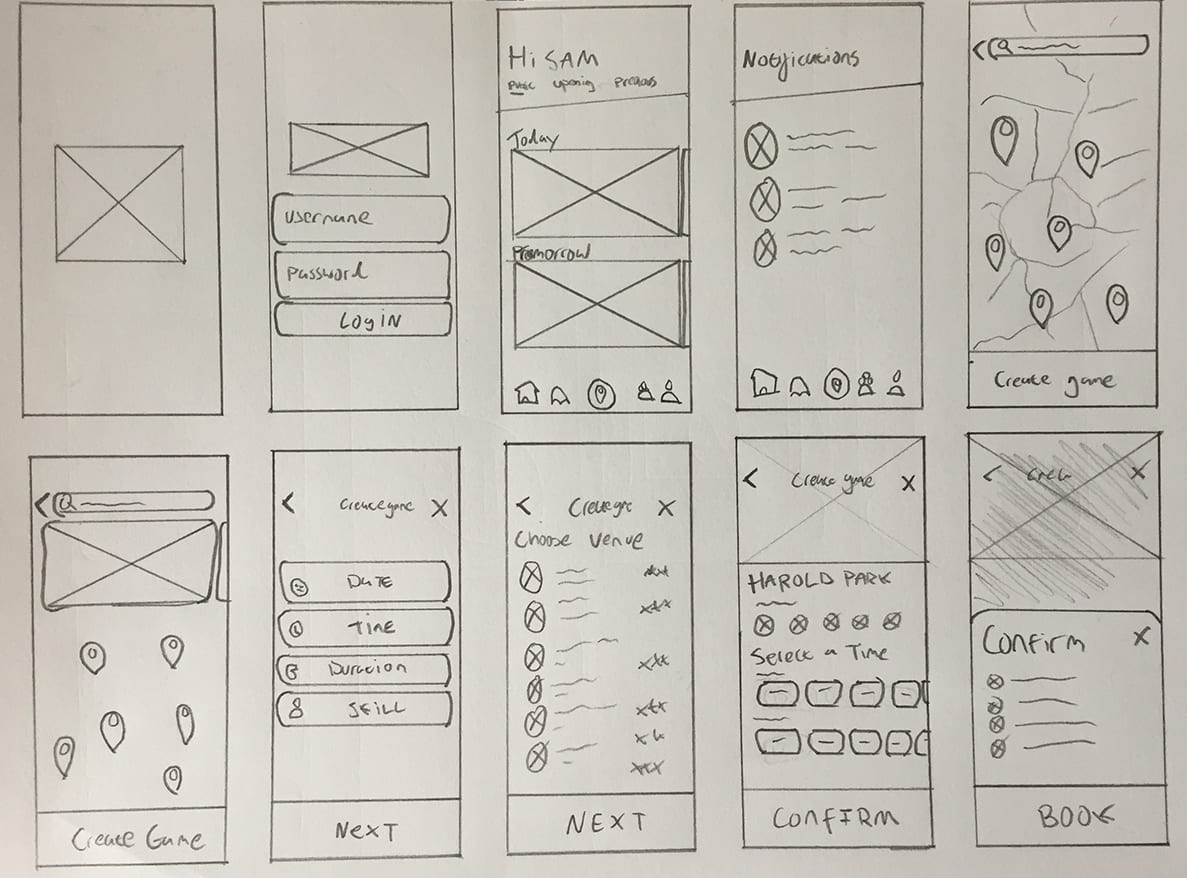 Username
Password
LOGIN
Hi SAM
Public upcoming Previous
Today
Tomorrow
Notifications
Create game
Create Game
Create game
DATE
TIME
Duration
SKILL
NEXT
Create game
Choose Venue
NEXT
Create game
HAROLD PARK
Select a Time
CONFIRM
Confirm
BOOK